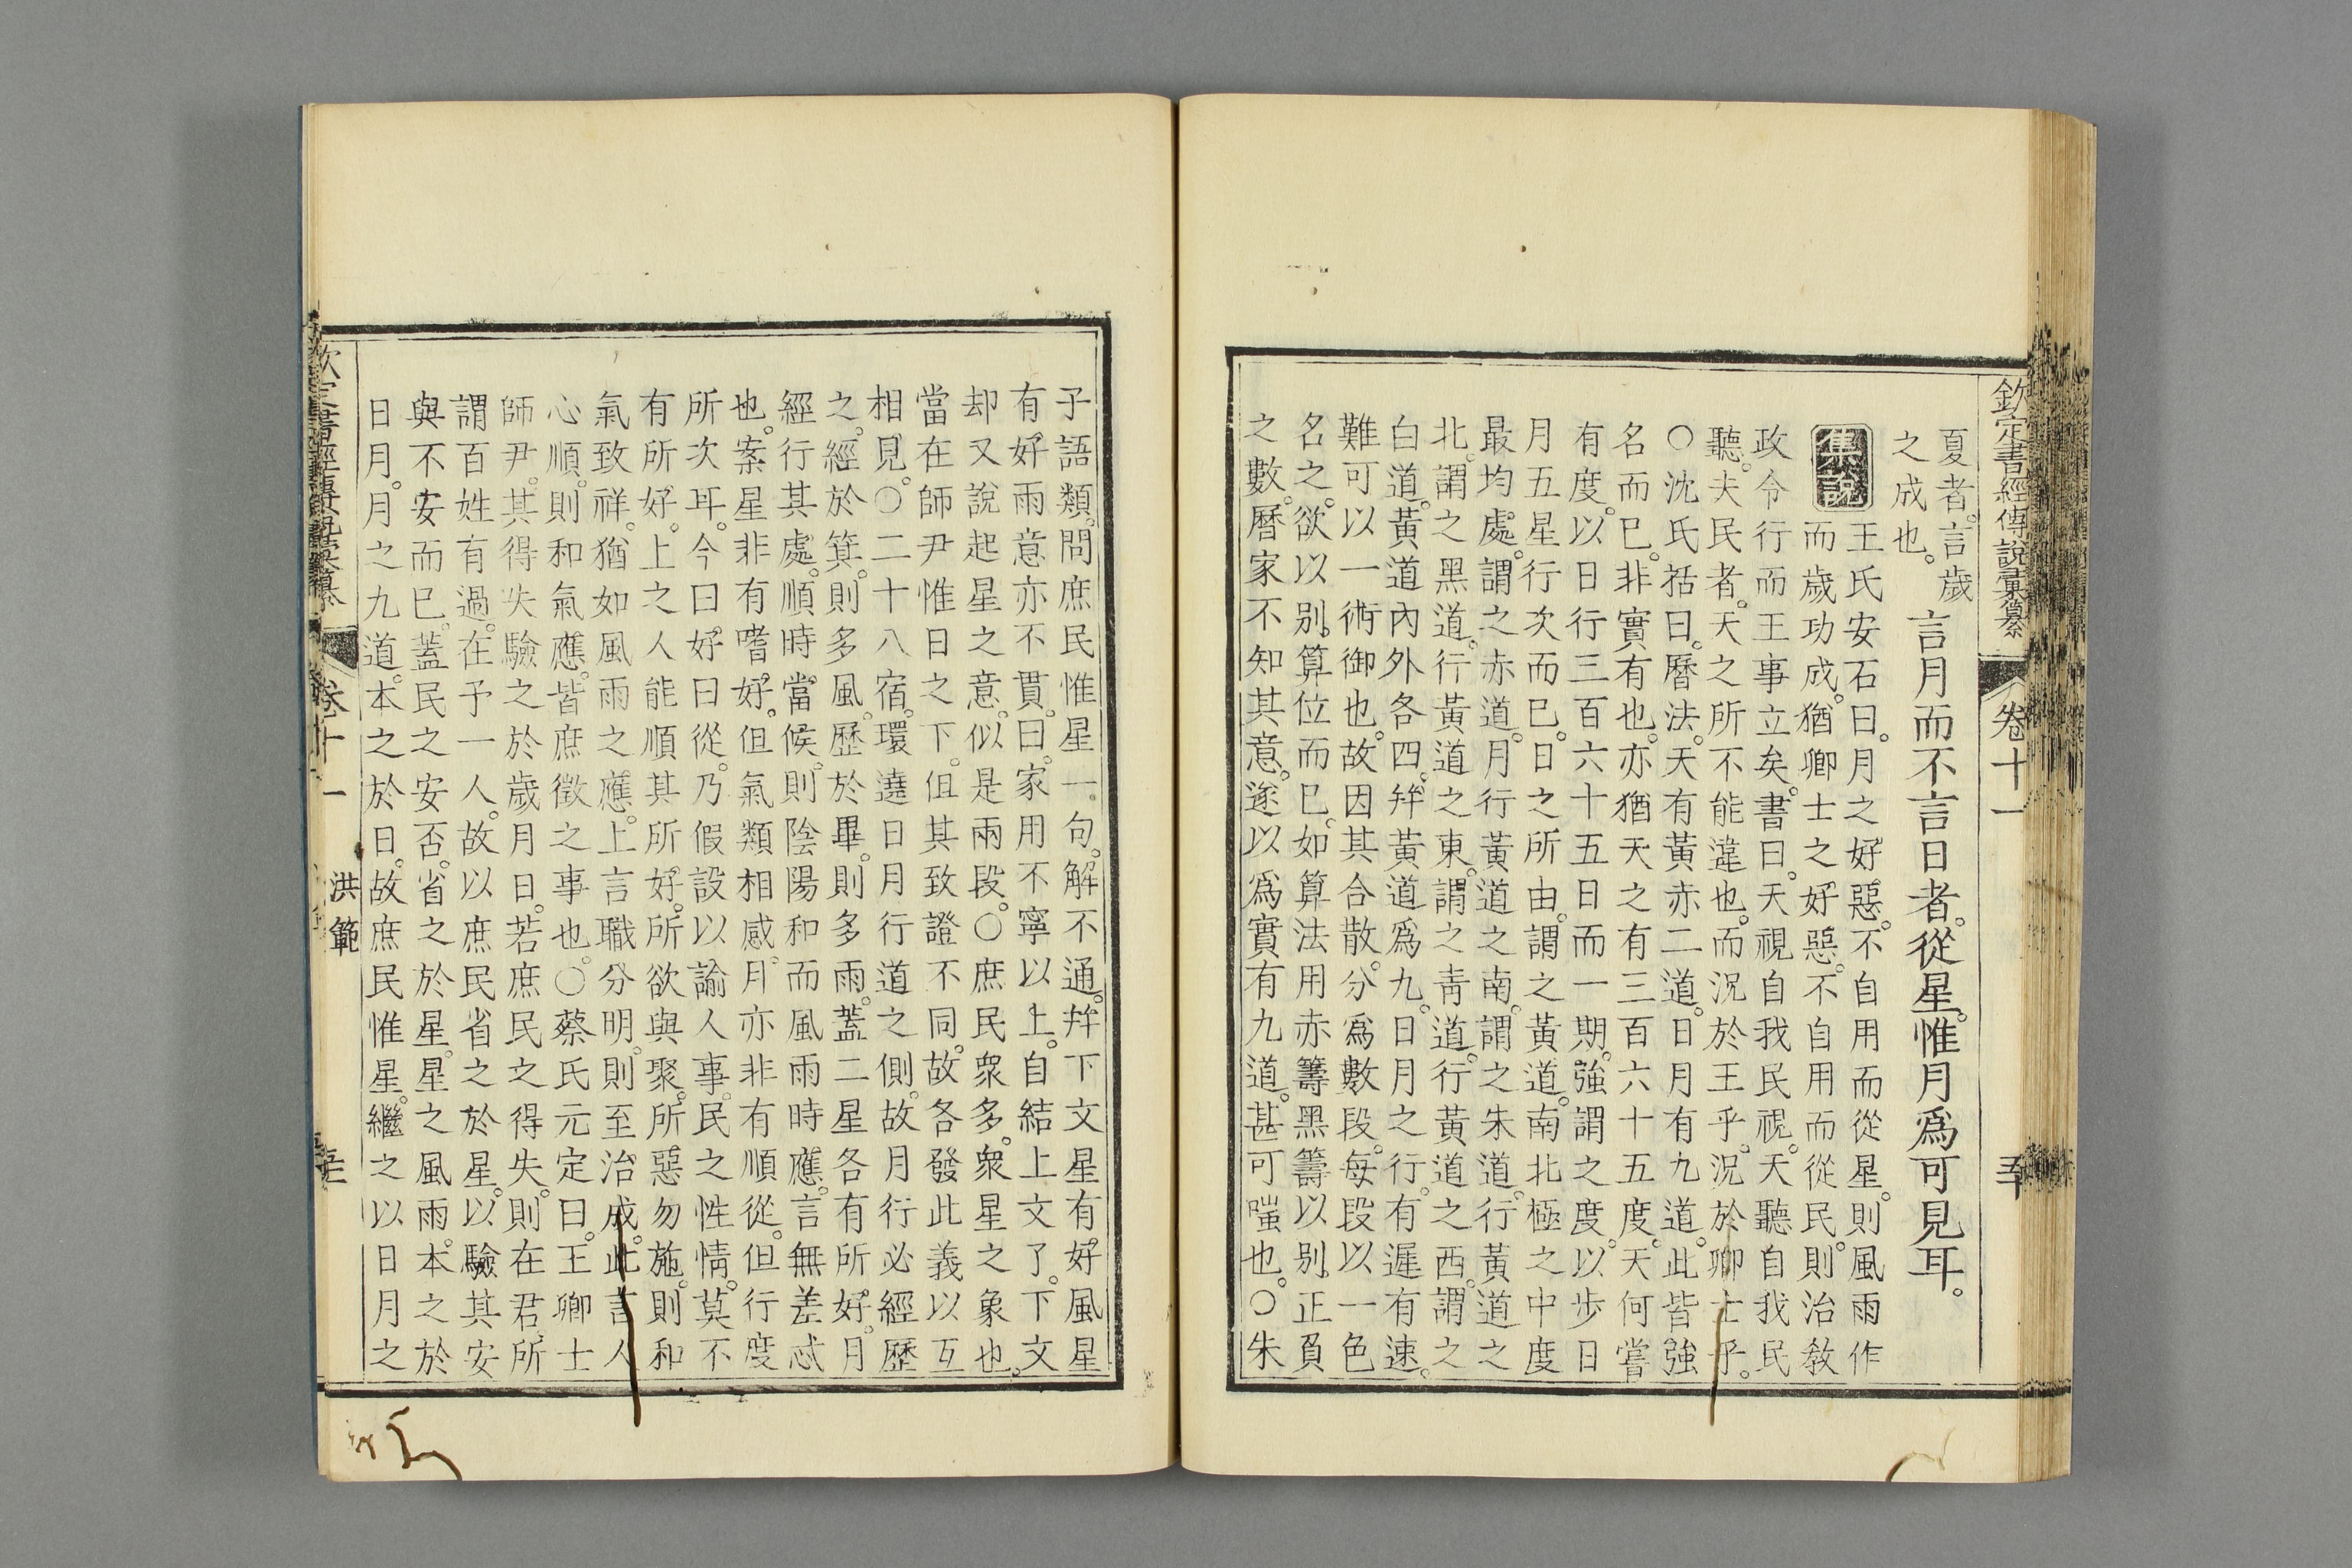 欽定書經傳說彙纂　卷十一　五十
夏者。言歲
之成也。
言月而不言日者。從星。惟月爲可見耳。
集說
王氏安石曰。月之好惡。不自用而從星。則風雨作
而歲功成。猶卿士之好惡。不自用而從民。則治敎
政令行而王事立矣。書曰。天視自我民視。天聽自我民
聽。夫民者。天之所不能違也。而況於王乎。況於卿士乎。
○沈氏括曰。曆法。天有黃赤二道。日月有九道。此皆強
名而已。非實有也。亦猶天之有三百六十五度。天何嘗
有度。以日行三百六十五日而一期。強謂之度。以步日
月五星行次而已。日之所由。謂之黃道。南北極之中度
最均處。謂之赤道。月行黃道之南。謂之朱道。行黃道之
北。謂之黑道。行黃道之東。謂之靑道。行黃道之西。謂之
白道。黃道內外各四。幷黃道爲九。日月之行。有遲有速。
難可以一術御也。故因其合散。分爲數段。每段以一色
名之。欲以别。算位而已。如算法用赤籌黑籌以别正負
之數。曆家不知其意。遂以爲實有九道。甚可嗤也。○朱
子語類。問庶民惟星一句。解不通。幷下文星有好風星
有好雨意亦不貫。曰。家用不寧以上。自結上文了。下文
却又說起星之意。似是兩段。○庶民衆多。衆星之象也。
當在師尹惟日之下。但其致證不同。故各發此義以互
相見。○二十八宿。環遶日月行道之側。故月行必經歷
之。經於箕。則多風。歷於畢。則多雨。蓋二星各有所好。月
經行其處。順時當候。則陰陽和而風雨時應。言無差忒
也。案星非有嗜好。但氣類相感。月亦非有順從。但行度
所次耳。今曰好曰從。乃假設以諭人事。民之性情。莫不
有所好。上之人能順其所好。所欲與聚。所惡勿施。則和
氣致祥。猶如風雨之應。上言職分明。則至治成。此言人
心順。則和氣應。皆庶徵之事也。○蔡氏元定曰。王卿士
師尹。其得失驗之於歲月日。若庶民之得失。則在君。所
謂百姓有過。在予一人。故以庶民省之於星。以驗其安
與不安而已。蓋民之安否。省之於星。星之風雨。本之於
日月。月之九道。本之於日。故庶民惟星。繼之以日月之
欽定書經傳說彙纂　卷十一　洪範